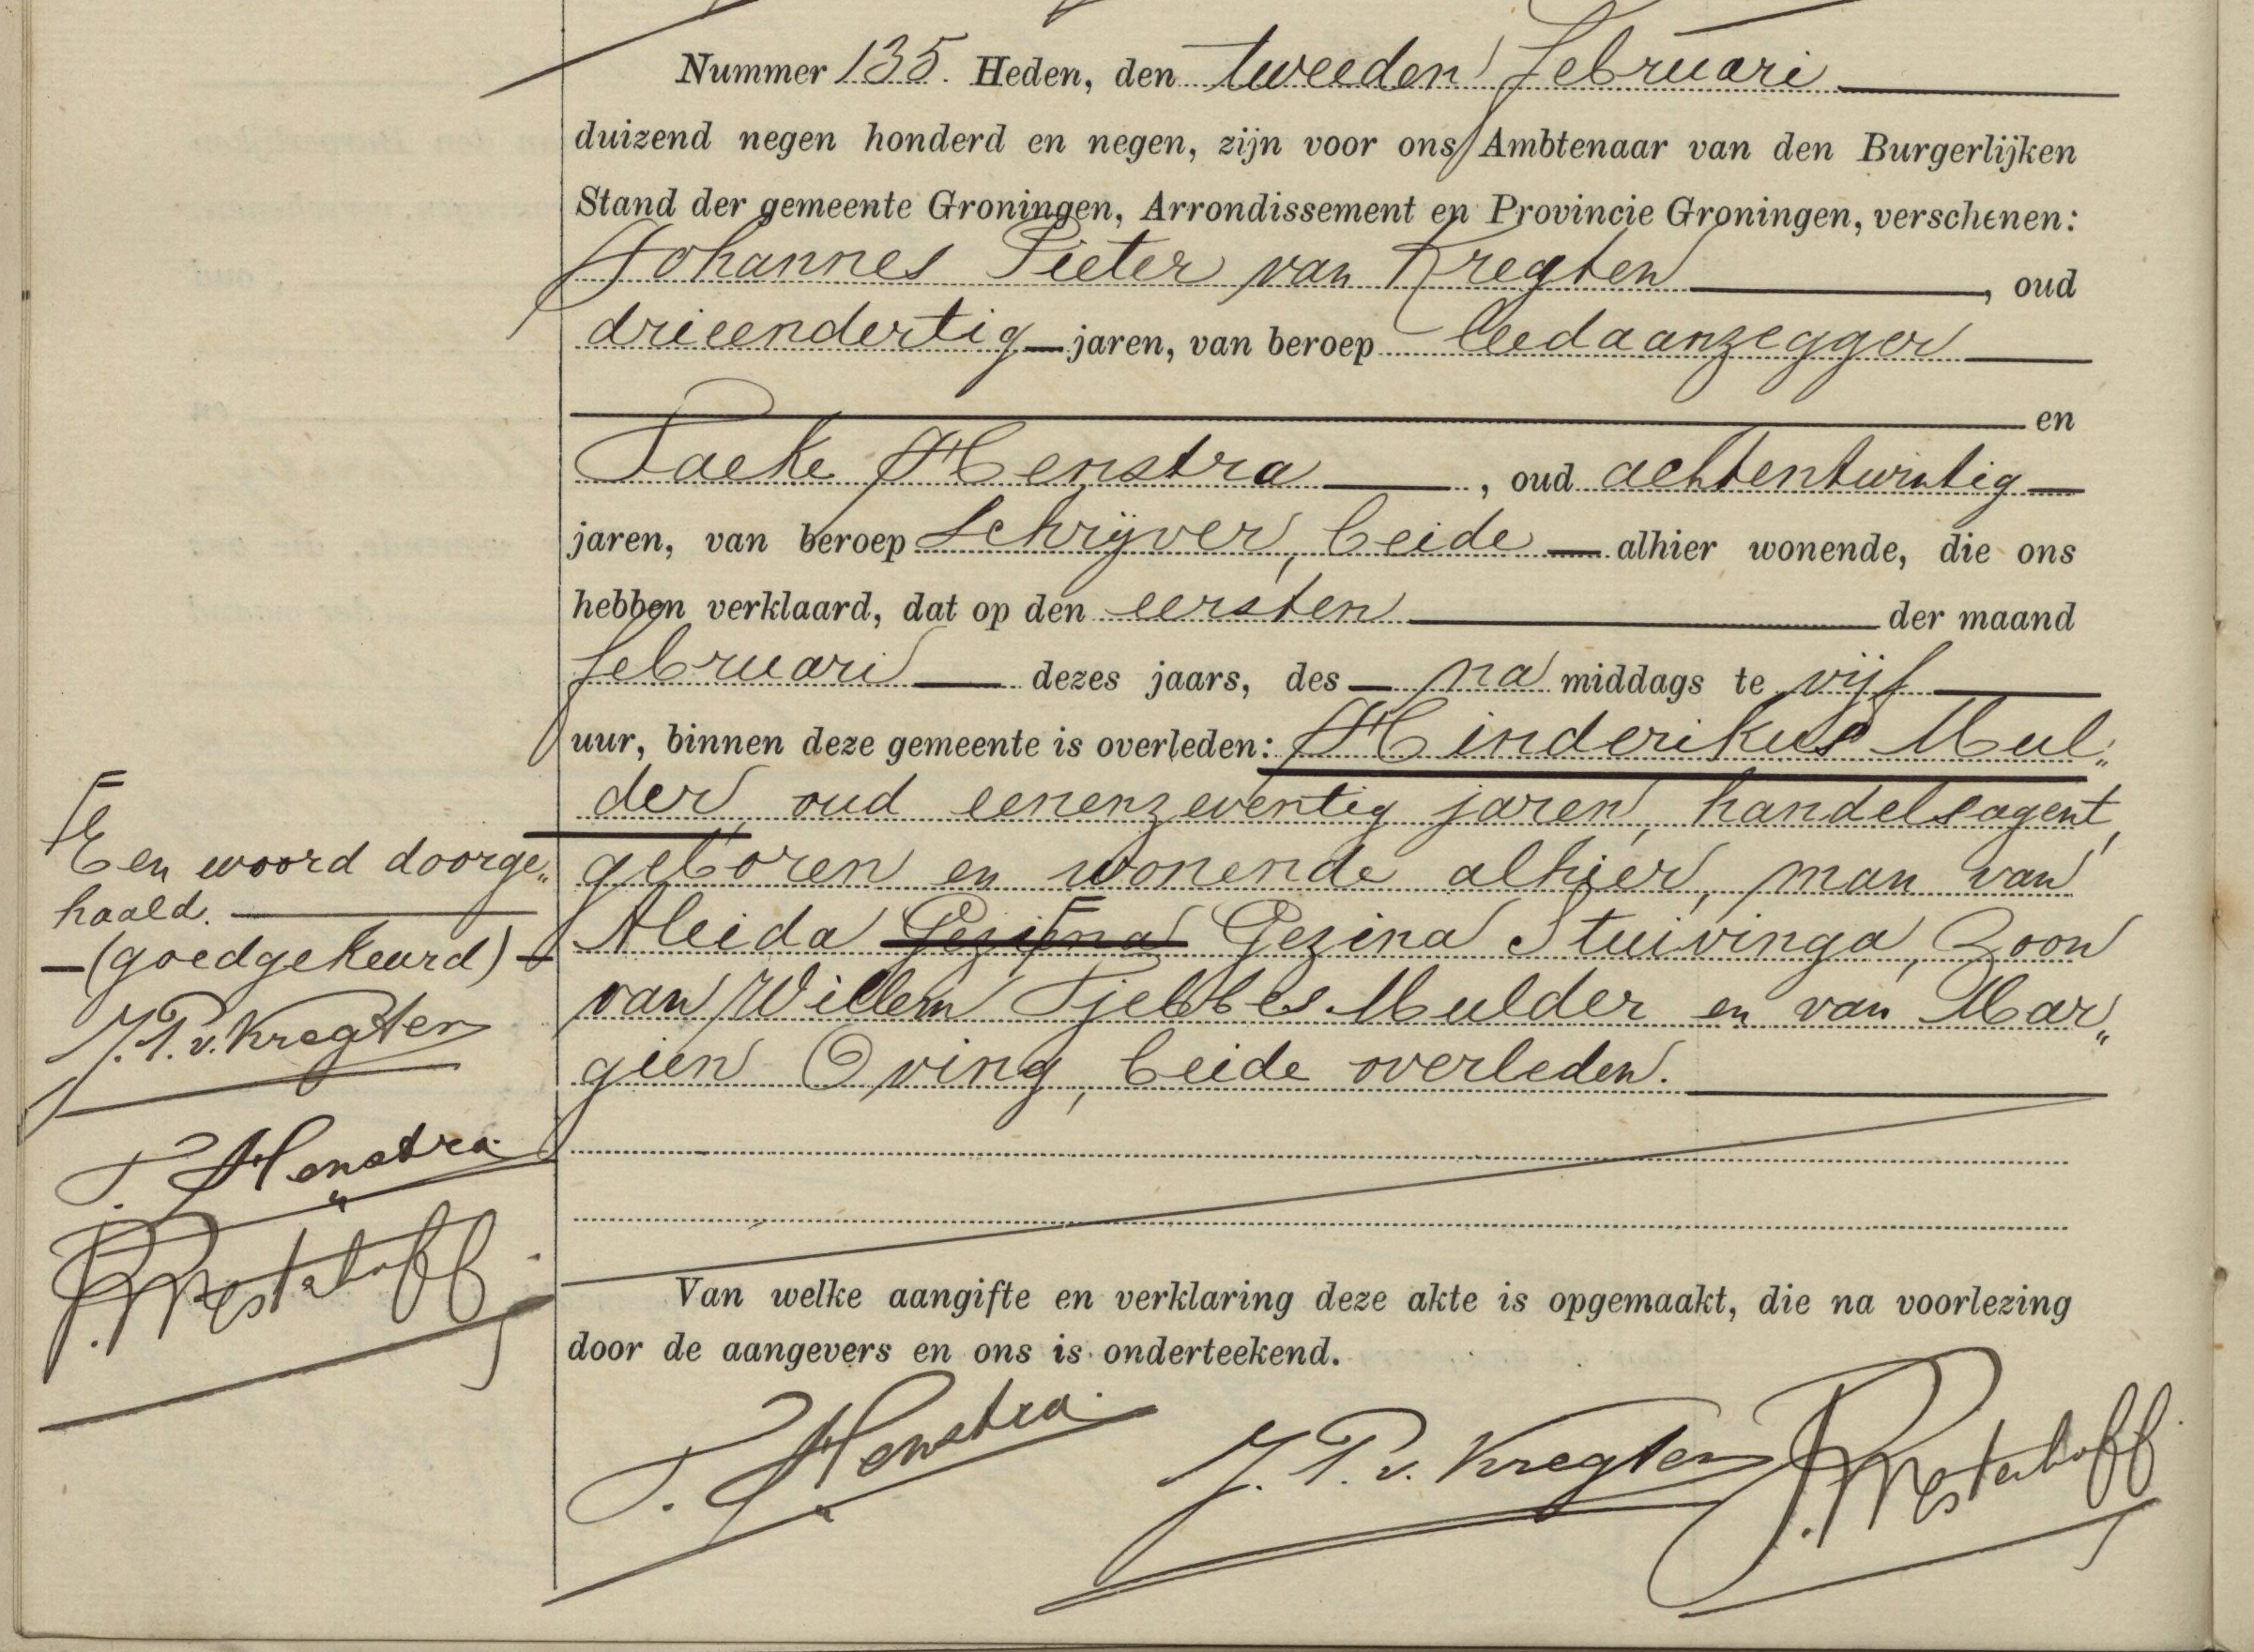 Nummer 135. Heden, den tweeden Februari
duizend negen honderd en negen, zijn voor ons Ambtenaar van den Burgerlijken
Stand der gemeente Groningen, Arrondissement en Provincie Groningen, verschenen:
Johannes Pieter van Kregten, oud
drieendertig jaren, van beroep leedaanzegger
en
Paeke Henstra, oud achtentwintig
jaren, van beroep Schrijver, beide alhier wonende, die ons
hebben verklaard, dat op den eersten der maand
Februari dezes jaars, des na middags te vijf
uur, binnen deze gemeente is overleden: Hinderikus Mul„
der, oud eenenzeventig jaren, handelsagent,
geboren en wonende alhier, man van
Aleida Geziena Gezina Stuivinga, Zoon
van Willem Tjebbes Mulder en van Mar„
gien Oving, beide overleden.
Van welke aangifte en verklaring deze akte is opgemaakt, die na voorlezing
door de aangevers en ons is onderteekend.
Een woord doorge„
haald.
(goedgekeurd)
J. P. v. Kregten
P. Henstra
P. Westerhoff
P. Henstra. J. P. v. Kregten P. Westerhoff